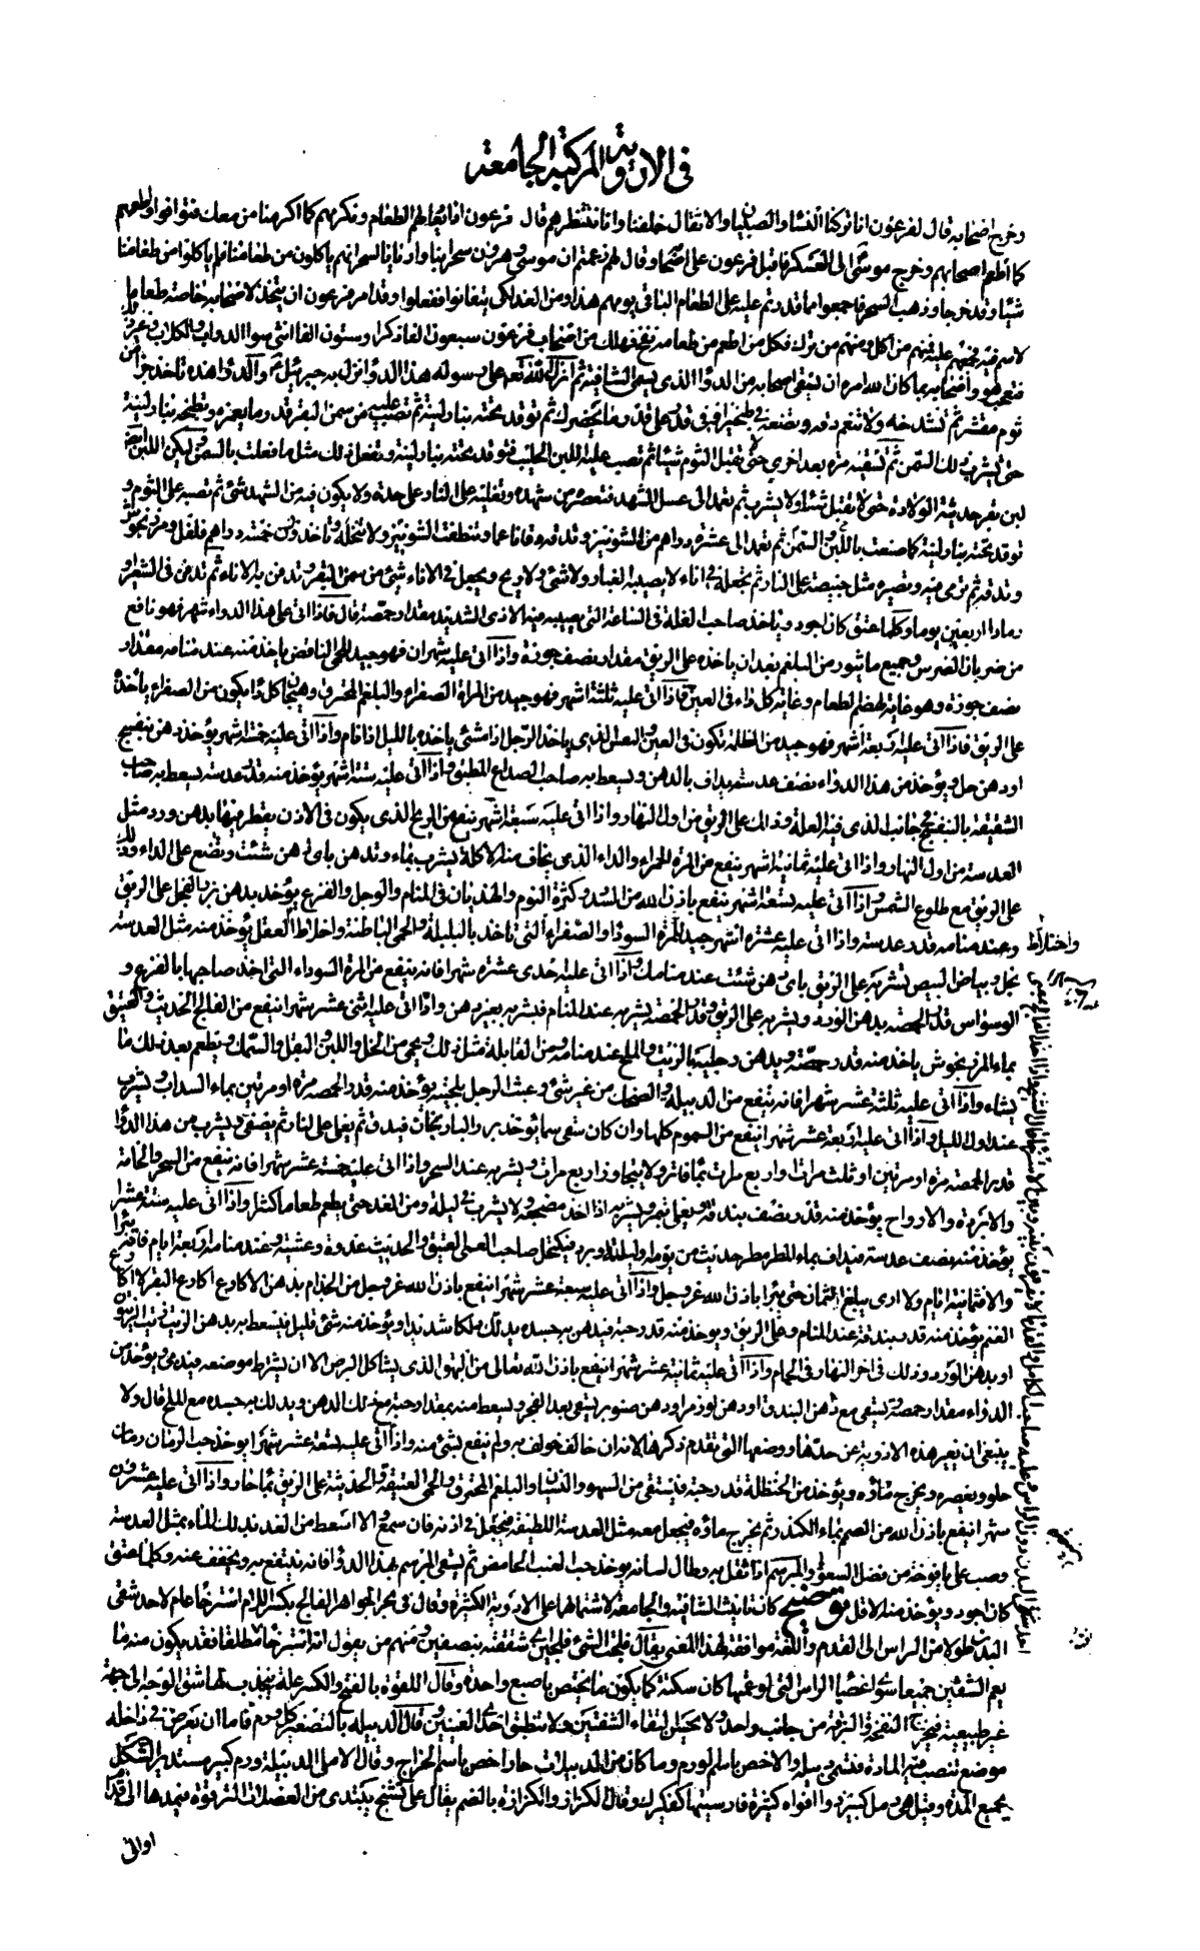 في الادوية المركبة الجامعة
وخرج اصحابه قال لفرعون انا تركنا النساء والصبيان والاثقال خلفنا وانا ننتظرهم قال فرعون اذا يهيأ لهم الطعام ونكرمهم كما اكرمنا من معك فتوافوا واطعمهم
كما اطعم اصحابهم وخرج موسى الى العسكر فاقبل فرعون على اصحابه وقال لهم زعمتم ان موسى وهرون سحرا بنا وارونا بالسحر انهم ياكلون من طعامنا فلم ياكلوا من طعامنا
شيئا وقد خرجا وذهب السحر فاجمعوا ما قدرتم عليه على الطعام الباقي يومهم هذا ومن الغد لكي يتفانوا ففعلوا وقد امر فرعون ان يتخذ لاصحابه خاصة طعاما
لا سم فيه فمنهم من اكل ومنهم من ترك فكل من اطعم من طعامه نفخ فهلك من اصحاب فرعون سبعون الفا ذكرا وستون الفا انثى سوا الدواب والكلاب وغير ذلك
فتعجب هو واصحابه بما كان الله امره ان يسقي اصحابه من الدواء الذي يسمى الشافية ثم انزل الله تعالى على رسوله هذا الدواء نزل به جبرئيل والدواء هذه تاخذ جزأ من
ثوم مقشر ثم تشدخه ولا تنعم دقه وتضعه في طنجير او في قدر على قدر ما يحضرك ثم توقد تحته بنار لينة ثم تصب عليه من سمن البقر قدر ما يغمره وتطبخه بنار لينة
حتى يشرب ذلك السمن ثم تسقيه مرة بعد اخرى حتى لا يقبل الثوم شيئا ثم تصب عليه اللبن الحليب فتوقد تحته بنار لينة وتفعل ذلك مثل ما فعلت بالسمن وليكن اللبن ايضا
لبن بقر حديثة الولادة حتى لا يقبل شيئا ولا يشرب ثم تعمد الى عسل الشهد فتعصره من شهده وتغليه على النار على حدة ولا يكون فيه من الشهد شئ ثم تصبه على الثوم و
توقد تحته بنار لينة كما صنعت باللبن والسمن ثم تعمد الى عشرة دراهم من الشونيز وتدقه دقا ناعما وتنظف الشونيز ولا تنخله وتاخذ وزن خمسة دراهم فلفل ومرزنجوش
وتدقه ثم ترمي فيه وتصيره مثل خبيصة على النار ثم تجعله في اناء لا يصيبه الغبار ولا شئ ولا ريح ويجعل في الاناء شئ من سمن البقر وتدهن به الاناء ثم تدفن في الشعير او
رماد اربعين يوما وكلما عتق كان اجود وياخذ صاحب العلة في الساعة التي يصيبه فيه الاذى الشديد مقدار حمصة قال فاذا اتى على هذا الدواء شهر فهو نافع
من ضربان الضرس وجميع ما يثور من البلغم بعد ان ياخذه على الريق مقدار نصف جوزة واذا اتى عليه شهران فهو جيد للحمى النافض ياخذ منه عند منامه مقدار
نصف جوزة وهو غاية لهضم الطعام وغاية كل داء في العين فاذا اتى عليه ثلثة اشهر فهو جيد من المرة الصفراء والبلغم المحترق وهيجان كل داء يكون من الصفراء ياخذه
على الريق فاذا اتى عليه اربعة اشهر فهو جيد من الظلمة تكون في العين والنفس الذي ياخذ الرجل اذا مشى ياخذه بالليل اذا نام واذا اتى عليه خمسة اشهر يؤخذ دهن بنفسج
او دهن حل ويؤخذ من هذا الدواء نصف عدسة يداف بالدهن ويسعط به صاحب الصداع المطبق واذا اتى عليه ستة اشهر يؤخذ منه قدر عدسة يسعط به صاحب
الشقيقة بالبنفسج جانب الذي فيه العلة وذلك على الريق من اول النهار واذا اتى عليه سبعة اشهر ينفع من الريح الذي يكون في الاذن يقطر فيها بدهن ورد مثل
العدسة من اول النهار واذا اتى عليه ثمانية اشهر ينفع من المرة الحمراء والداء الذي يخاف منه الاكلة يشرب بماء وتدهن باي دهن شئت وتضع على الداء وذلك
على الريق مع طلوع الشمس واذا اتى عليه تسعة اشهر ينفع باذن الله من السدد وكثرة النوم والهذيان في المنام والوجل والفزع يؤخذ بدهن بزر الفجل على الريق
وعند منامه قدر عدسة واذا اتى عليه عشرة اشهر جيد للمرة السوداء والصفراء التي تاخذ بالبلبلة والحمى الباطنة واختلاط العقل يؤخذ منه مثل العدسة
بخل وبياض البيض تشربه على الريق باي دهن شئت عند منامك واذا اتى عليه احدى عشرة شهرا فانه ينفع من المرة السوداء التي اخذ صاحبها بالفزع و
الوسواس قدر الحمصة بدهن الورد ويشربه على الريق وقدر الحمصة يشربه عند المنام فيشربه بغير دهن واذا اتى عليه اثنى عشر شهرا ينفع من الفالج الحديث والعتيق
بماء المرزنجوش ياخذ منه قدر حمصة ويدهن رجليه بالزيت والملح عند منامه ومن القابلة مثل ذلك ويحمى من الخل واللبن والبقل والسمك ويطعم بعد ذلك ما
يشاء واذا اتى عليه ثلثة عشر شهرا فانه ينفع من الدبيلة والضحك من غير شئ وعبث الرجل بلحيته يؤخذ منه قدر الحمصة مرة او مرتين بماء السداب ويشرب
عند اول الليل واذا اتى عليه اربعة عشر شهرا ينفع من السموم كلها وان كان سقي سما يؤخذ بزر الباذنجان فيدق ثم يغلى على النار ثم يصفى ويشرب من هذا الدواء
قدر الحمصة مرة او مرتين او ثلث مرات او اربع مرات بماء فاتر ولا يتجاوز اربع مرات ويشربه عند السحر واذا اتى عليه خمسة عشر شهرا فانه ينفع من السحر والخامة
والابردة والارواح يؤخذ منه قدر نصف بندقة ويغلى بتمر ويشربه اذا اخذ مضجعه ولا يشرب في ليلة ومن الغد حتى يطعم طعاما كثيرا واذا اتى عليه ستة عشر شهرا
يؤخذ منه نصف عدسة فيداف بماء المطر مطر حديث من يومه او ليلته او برد فيكتحل صاحب العمى العتيق والحديث غدوة وعشية وعند منامه اربعة ايام فان برئ
والا فثمانية ايام ولا ارى يبلغ الثمان حتى يبرا باذن الله عز وجل واذا اتى عليه سبعة عشر شهرا ينفع باذن الله عز وجل من الجذام بدهن الاكارع اكارع البقر لا اكارع
الغنم يؤخذ منه قدر بندقة عند المنام وعلى الريق ويؤخذ منه قدر حبة فيدهن به جسده يدلك دلكا شديدا ويؤخذ منه شئ قليل فيسعط به بدهن الزيت زيت الزيتون
او بدهن الورد وذلك في اخر النهار في الحمام واذا اتى عليه ثمانية عشر شهرا ينفع باذن الله تعالى من البهق الذي يشاكل البرص الا ان يشرط موضعه فيدمى ويؤخذ من
الدواء مقدار حمصة يسقى مع دهن البندق او دهن لوز مر او دهن صنوبر يسقى بعد الفجر ويسعط منه بمقدار حبة مع ذلك الدهن ويدلك به جسده مع الملح قال ولا
ينبغي ان يغير هذه الادوية عن حدها ووضعها التي تقدم ذكرها لانه ان خالف خولف به ولم ينفع بشئ منه واذا اتى عليه تسعة عشر شهرا يؤخذ حب الرمان رمان
حلو ويعصره ويخرج ماؤه ويؤخذ من الحنظلة قدر حبة فيستقى من السهو والنسيان والبلغم المحترق والحمى العتيقة والحديثة على الريق بماء حار واذا اتى عليه عشرون
شهرا ينفع باذن الله من الصمم بماء الكندر ثم يخرج ماؤه فيجعل معه مثل العدسة اللطيفة فيجعل في اذنه فان سمع والا اسعط من الغد بذلك الماء بمثل العدسة
وصب على يافوخه من فضل السعوط والمبرسم اذا ثقل به وطال لسانه يوخذ حب العنب الحامض ثم يسقى المبرسم بهذا الدواء فانه ينتفع به ويخفف عنه وكلما عتق
كان اجود ويؤخذ منه الاقل توضيح كان تانيث الشافية والجامعة لاشتمالها على الادوية الكثيرة وقال في بحر الجواهر الفالج بكسر اللام استرخاء عام لاحد شقي
البدن طولا من الراس الى القدم واللغة موافقة لهذا المعنى يقال فلجت الشئ فلجا اي شققته بنصفين ومنهم من يقول انه استرخاء مطلقا فقد يكون منه ما
يعم الشقين جميعا سوى اعضاء الراس التي لو عمها كان سكتة كما يكون ما يختص باصبع واحدة وقال اللقوة بالفتح والكسر علة ينجذب لها شق الوجه الى جهة
غير طبيعية فيخرج النفخة والبزقة من جانب واحد ولا يحسن التقاء الشفتين ولا تنطبق احدى العينين وقال الدبيلة بالتصغير كل ورم فاما ان يعرض في داخله
موضع تنصب فيه المادة فتسمى دبيلة والا خص باسم الورم وما كان من الدبيلات حارا خص باسم الخراج وقال الاملي الدبيلة ورم كبير مستدير الشكل
يجمع المدة وقيل هي دمل كبيرة ذا افواه كثيرة فارسيتها كفكيرك وقال الكزاز والكزازة بالضم يقال على تشنج يبتدى من العضلات الترقوة فيمدها الى قدام
اوالى
واختلاط